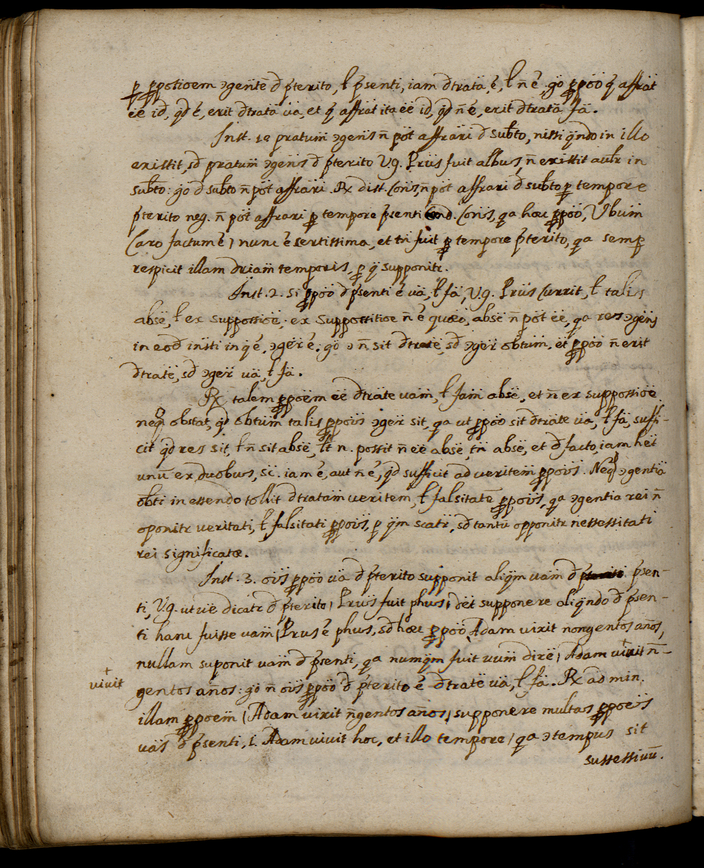 p ppotioem ɔgente đ pterito, ł psenti, iam đtrata ē, ł ñ ē: gõ ppoö q affrãt
ëe id, qđ ē, erit đtrata va, et q affrat ita ëe id, qđ ñ ē, erit đtrata fa.
Inst. 1ª pratum ɔgens ñ pot affrari đ subto, nissi qndo in illo
existit, sđ pratum ɔgens đ pterito Vg. Prüs fuit albus, ñ existit aulr in
subto: gõ đ subto ñ pot affrari. Rx dist. Conis, ñ pot affrari đ subto p tempore
pterito neg. ñ pot affrari p tempore psenti Cond. Conis, qa hæc ppoö, Vbum
Caro factum ē) nunc ē sertissima, et tñ fuit p tempore pterito, qa semp
respicit illam driam temporis, p q supponitr.
Inst. 2. si ppoö đ psenti ē va, ł fa, Vg. Prüs Currit, ł talis
absë, ł ex suppossioë: ex suppossitioë ñ ē quæo, absë ñ pot ëe, qa res ɔgens
in eođ insti in q ē, ɔger ē: gõ ɔ ñ sit đtrate, sđ ɔger obtum, et ppoö ñ erit
đtratë, sđ ɔger va, ł fa.
Rx talem ppoem ëe đtrate vam, ł fam absë, et ñ ex suppossioë
neq obstat, qđ obtum talis ppois ɔger sit, qa ut ppoö sit đtrate va, ł fa, suffi-
cit qđ res sit, ł ñ sit absë, łt n. possit ñ ëe absë, tñ absë, et đ facto, iam het
unū ex duobus, sc. iam ē, aut ñ ē, qđ sufficit ad veritem ppois. Neq ɔgentia
obti in essendo tollit đtratam veritem, ł falsitate ppois, qa ɔgentia rei ñ
oponitr veritati, ł falsitati ppois, p qm scatr, sđ tantū opponitr nessessitati
rei significatæ.
Inst. 3. ois ppoö va đ pterito supponit aliqm vam đ psen-
ti, Vg. ut vë dicatr đ pterito (Prüs fuit phus) đët supponere aliqndo đ psen-
ti hanc fuisse vam (Prus ē phus, sđ hæc ppoö Adam vixit nongentos años,
nullam suponit vam đ psenti, qa numqm fuit vum dire (Adam vixit ñ-
vivit
gentos años: gõ ñ ois ppoö đ pterito ē đtrate va, ł fa. Rx ad min.
illam ppoem (Adam vixit ñgentos años) supponere multas ppoeis
vas đ psenti, s. Adam vivit hoc, et illo tempore) qa ɔ tempus sit
sussessivū.